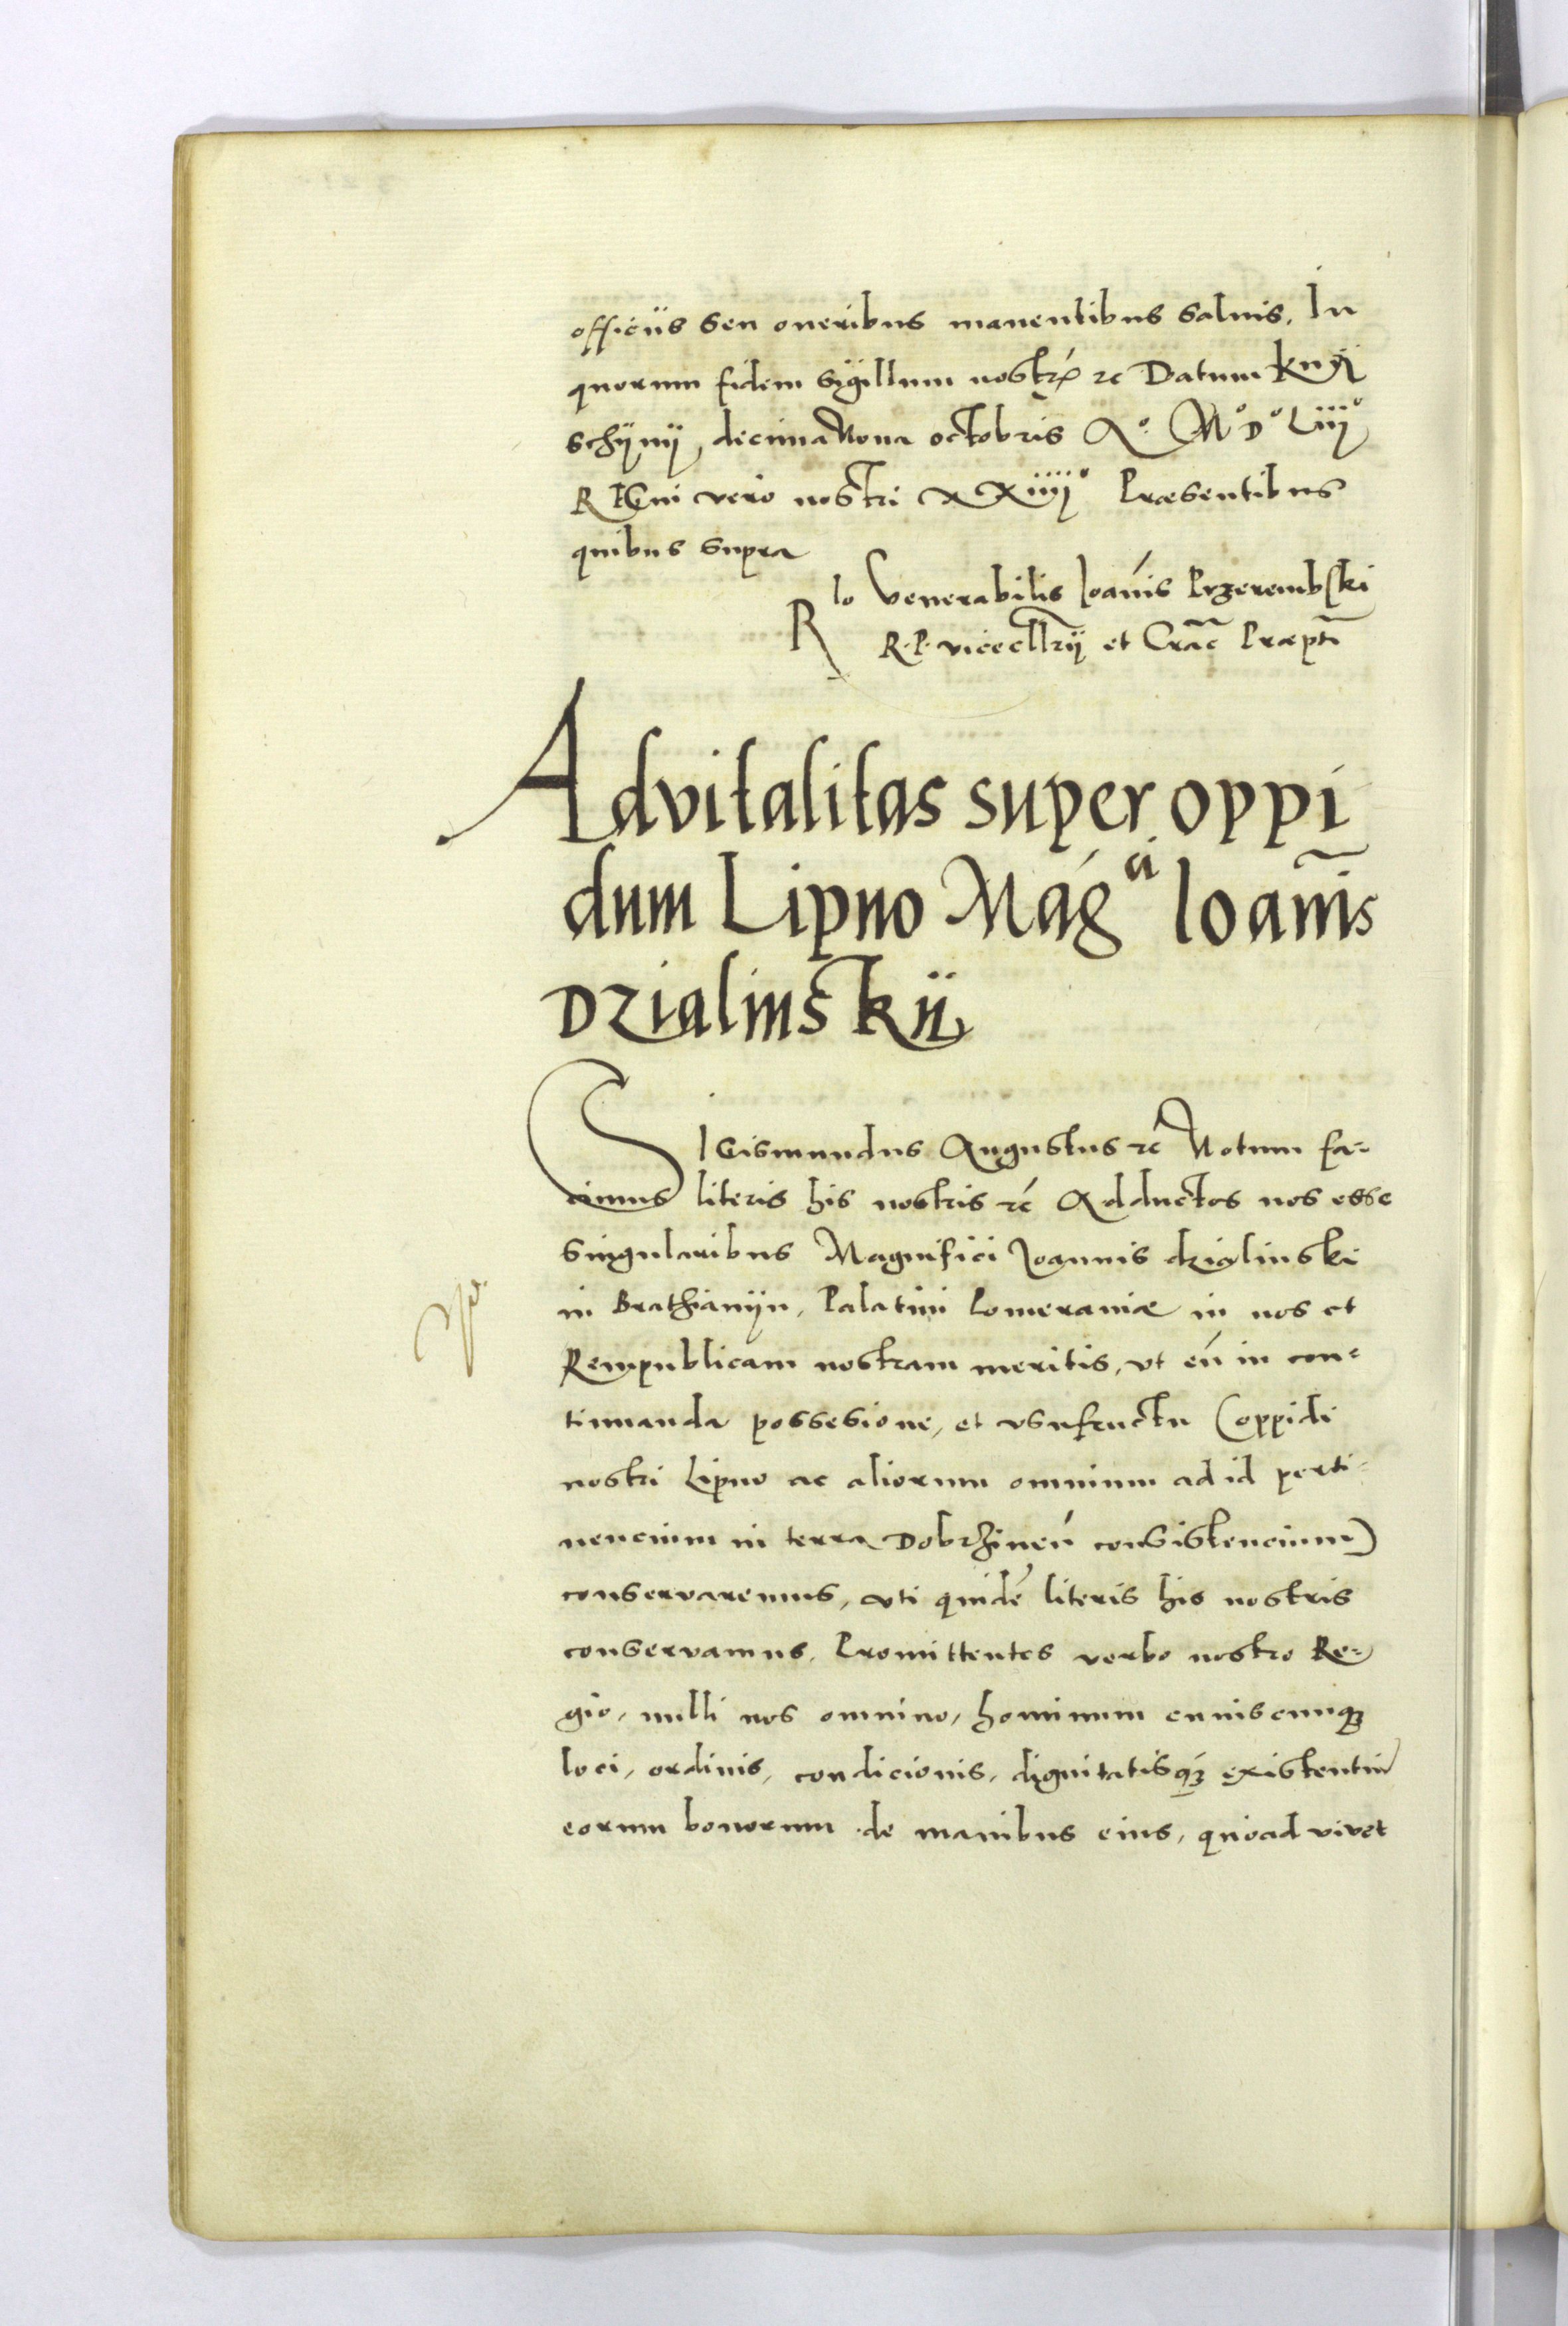 officiis seu oneribus manentibus salvis. In
quorum fidem sigillum nostrũ ꝛc Datum Kny
schÿnÿ, decima Nona octobris Aº. Mº Dº Liiiº
REGni vero nostri XXiiiiº Præsentibus
quibus supra
Rlo Venerabilis Ioańis Przerembski
R. P. vicecllrÿ et Crac̃ Præpti
Advitalitas super oppi
dum Lipno Mágci Ioañis
Dzialinskÿ
SIGismundus Augustus ꝛc Notum fa-
cimus literis his nostris ꝛc Adductos nos esse
singularibus Magnifici Joannis dzialinski
in Brathianÿn, Palatini Pomeraniæ in nos et
Rempublicam nostram meritis, vt eũ in con-
tinuanda possesione, et vsufructu (oppidi
nostri Lipno ac aliorum omnium ad id perti-
nencium in terra Dobrzineń consistencium)
conservaremus, vti quidẽ literis his nostris
conservamus. Promittentes verbo nostro Re-
gio, nulli nos omnino, hominum cuiuscunqꝫ
loci, ordinis, condicionis, dignitatisqꝫ existentiũ
eorum bonorum de manibus eius, quoad vivet